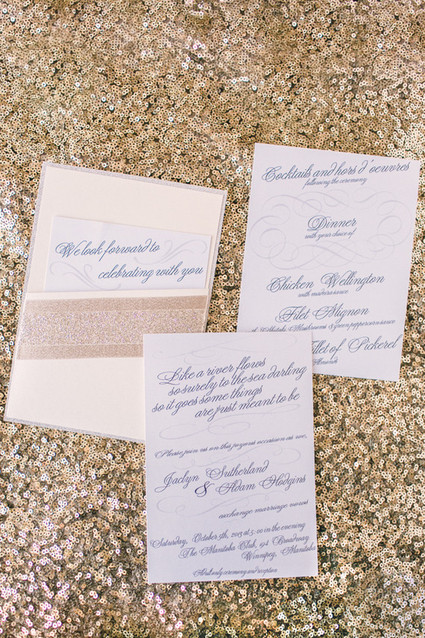 We look forward to
celebrating with you
Cocktails and hors d'oeuvres
following the ceremony
Dinner
with your choice of
Chicken Wellington
with
Filet Mignon
Fillet of Pickerel
Like a river flows
so surely to the sea darling
so it goes some things
are just meant to be
Please join us on this joyous occasion as we,
Jaclyn Sutherland
& Adam Hodgins
exchange marriage vows
Saturday, October 5th, 2013 at 5: in the evening
The Manitoba Club, 194 Broadway
Winnipeg, Manitoba
ceremony and reception